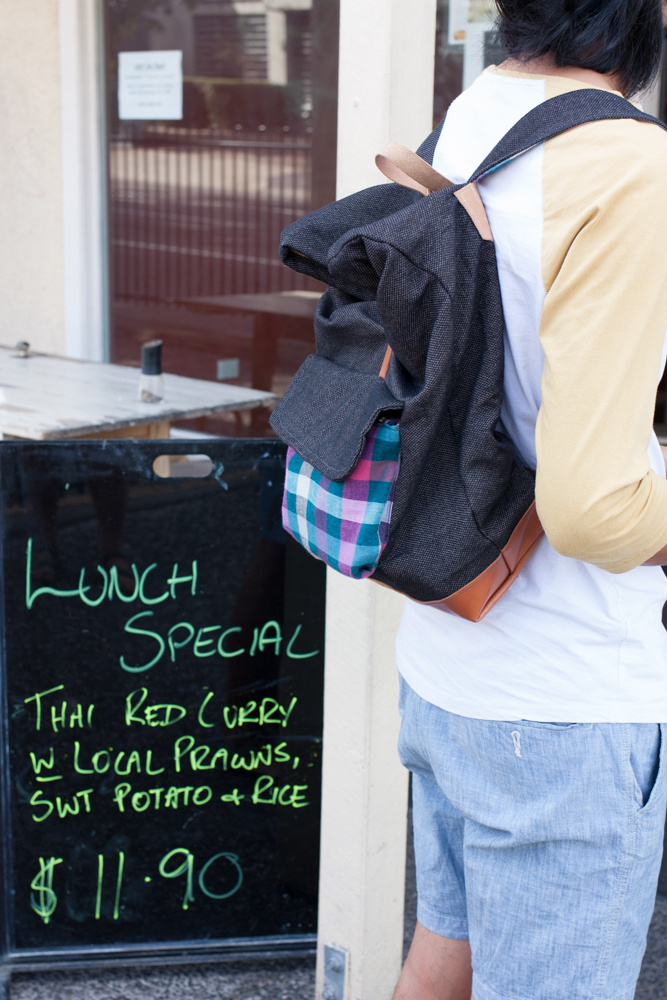 LUNCH
SPECIAL
THAI RED CURRY
W LOCAL PRAWNS,
SWT POTATO + RICE
$11.90